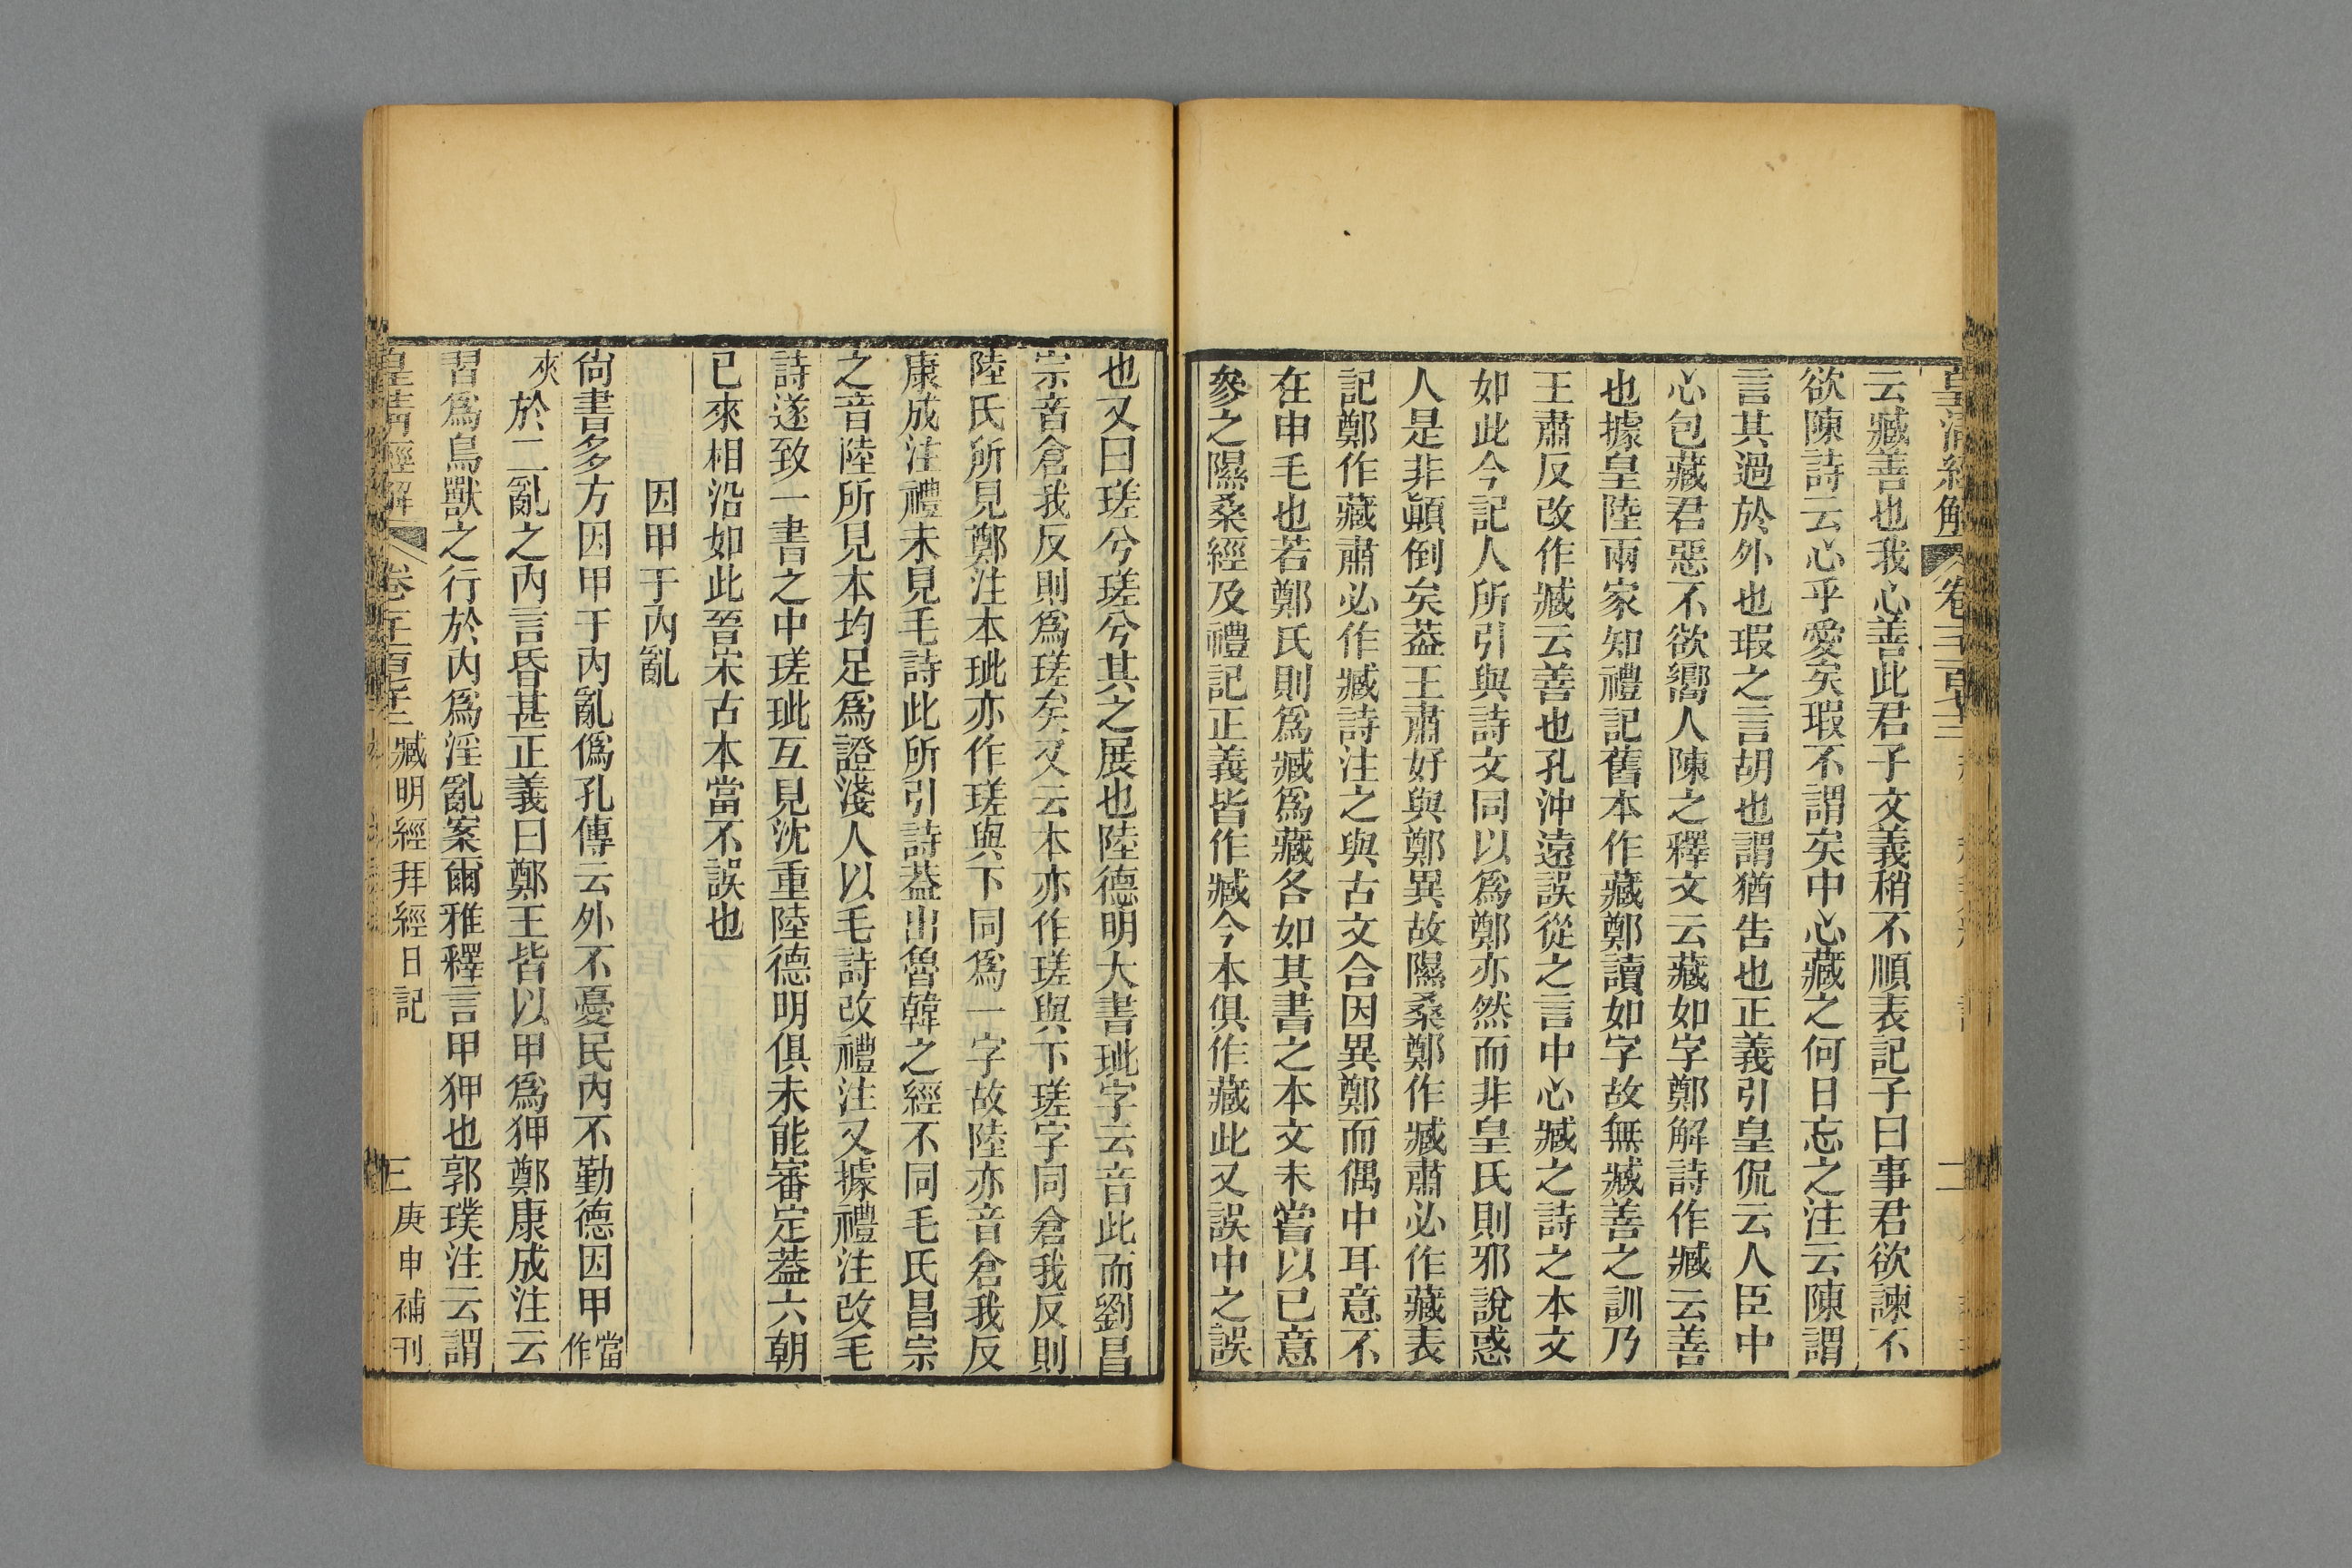 皇清經解 卷 二
云臧善也我心善此君子文義稍不順表記子曰事君欲諫不
欲陳詩云心乎愛矣瑕不謂矣中心藏之何日忘之注云陳謂
言其過於外也瑕之言胡也謂猶告也正義引皇侃云人臣中
心包藏君惡不欲嚮人陳之釋文云藏如字鄭解詩作臧云善
也據皇陸兩家知禮記舊本作藏鄭讀如字故無臧善之訓乃
王肅反改作臧云善也孔沖遠誤從之言中心臧之詩之本文
如此今記人所引與詩文同以爲鄭亦然而非皇氏則邪說惑
人是非顚倒矣葢王肅好與鄭異故隰桑鄭作臧肅必作藏表
記鄭作藏肅必作臧詩注之與古文合因異鄭而偶中耳意不
在申毛也若鄭氏則爲臧爲藏各如其書之本文未嘗以已意
參之隰桑經及禮記正義皆作臧今本俱作藏此又誤中之誤
也又曰瑳兮瑳兮其之展也陸德明大書玼字云音此而劉昌
宗音倉我反則爲瑳矣又云本亦作瑳與下瑳字同倉我反則
陸氏所見鄭注本玼亦作瑳與下同爲一字故陸亦音倉我反
康成注禮未見毛詩此所引詩葢出魯韓之經不同毛氏昌宗
之音陸所見本均足爲證淺人以毛詩改禮注又據禮注改毛
詩遂致一書之中瑳玼互見沈重陸德明俱未能審定葢六朝
已來相沿如此晉宋古本當不誤也
因甲于內亂
尙書多方因甲于內亂僞孔傳云外不憂民內不勤德因甲當作
夾於二亂之內言昏甚正義曰鄭王皆以甲爲狎鄭康成注云
習爲鳥獸之行於內爲淫亂案爾雅釋言甲狎也郭璞注云謂
皇淸經解 卷 臧明經拜經日記 三 庚申補刊